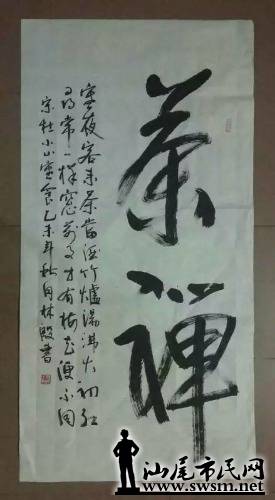 茶禅
寒夜客来茶當酒竹爐湯沸火初红
尋常一樣窓前月才有梅花便不同
宋杜小山寒食乙未年秋月林書
汕尾市民网
www.swsm.net